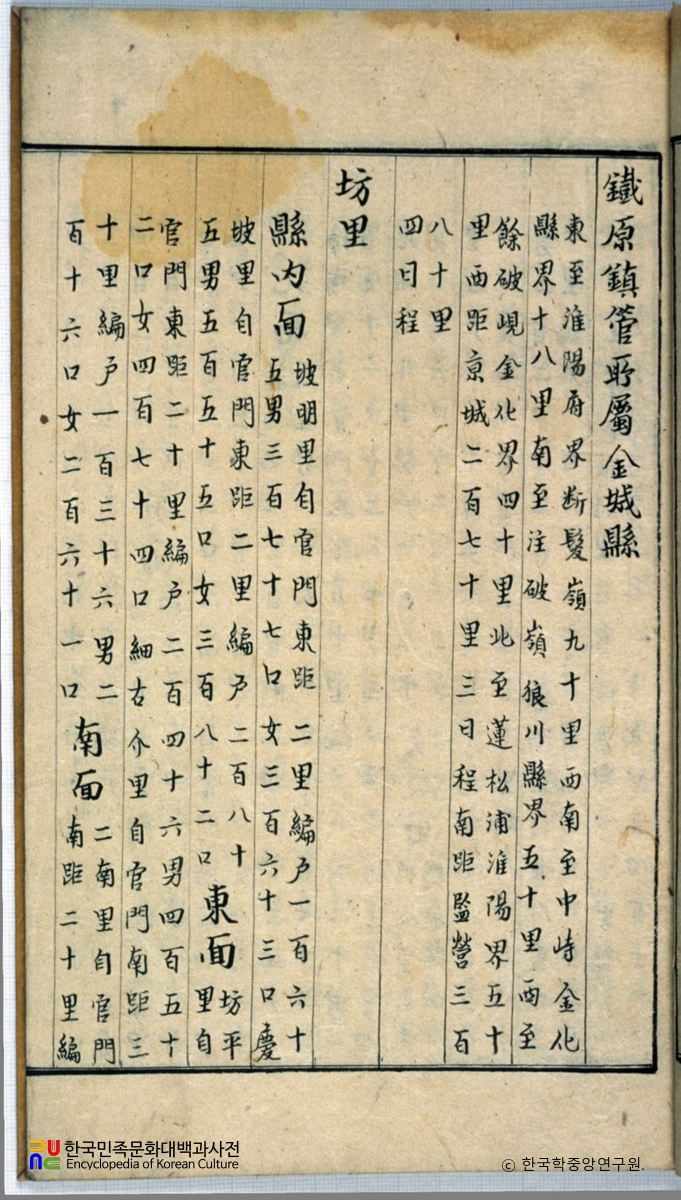 鐵原鎮管所屬金城縣
東至淮陽府界断髮嶺九十里西南至中峙金化
縣界十八里南至注破嶺狼川縣界五十里西至
餘破峴金化界四十里北至蓮松浦淮陽界五十
里西距京城二百七十里三日程南距監營三百
八十里
四日程
坊里
縣内面
坡明里自官門東距二里編户一百六十
五男三百七十七口女三百六十三口慶
坡里自官門東距二里編户二百八十
五男五百五十五口女三百八十二口
東面
坊平
里自
官門東距二十里編户二百四十六男四百五十
二口女四百七十四口細古介里自官門南距三
十里編户一百三十六男二
百十六口女二百六十一口
南面
二南里自官門
南距二十里編
한국민족문화대백과사전
Encyclopedia of Korean Culture
ⓒ 한국학중앙연구원.